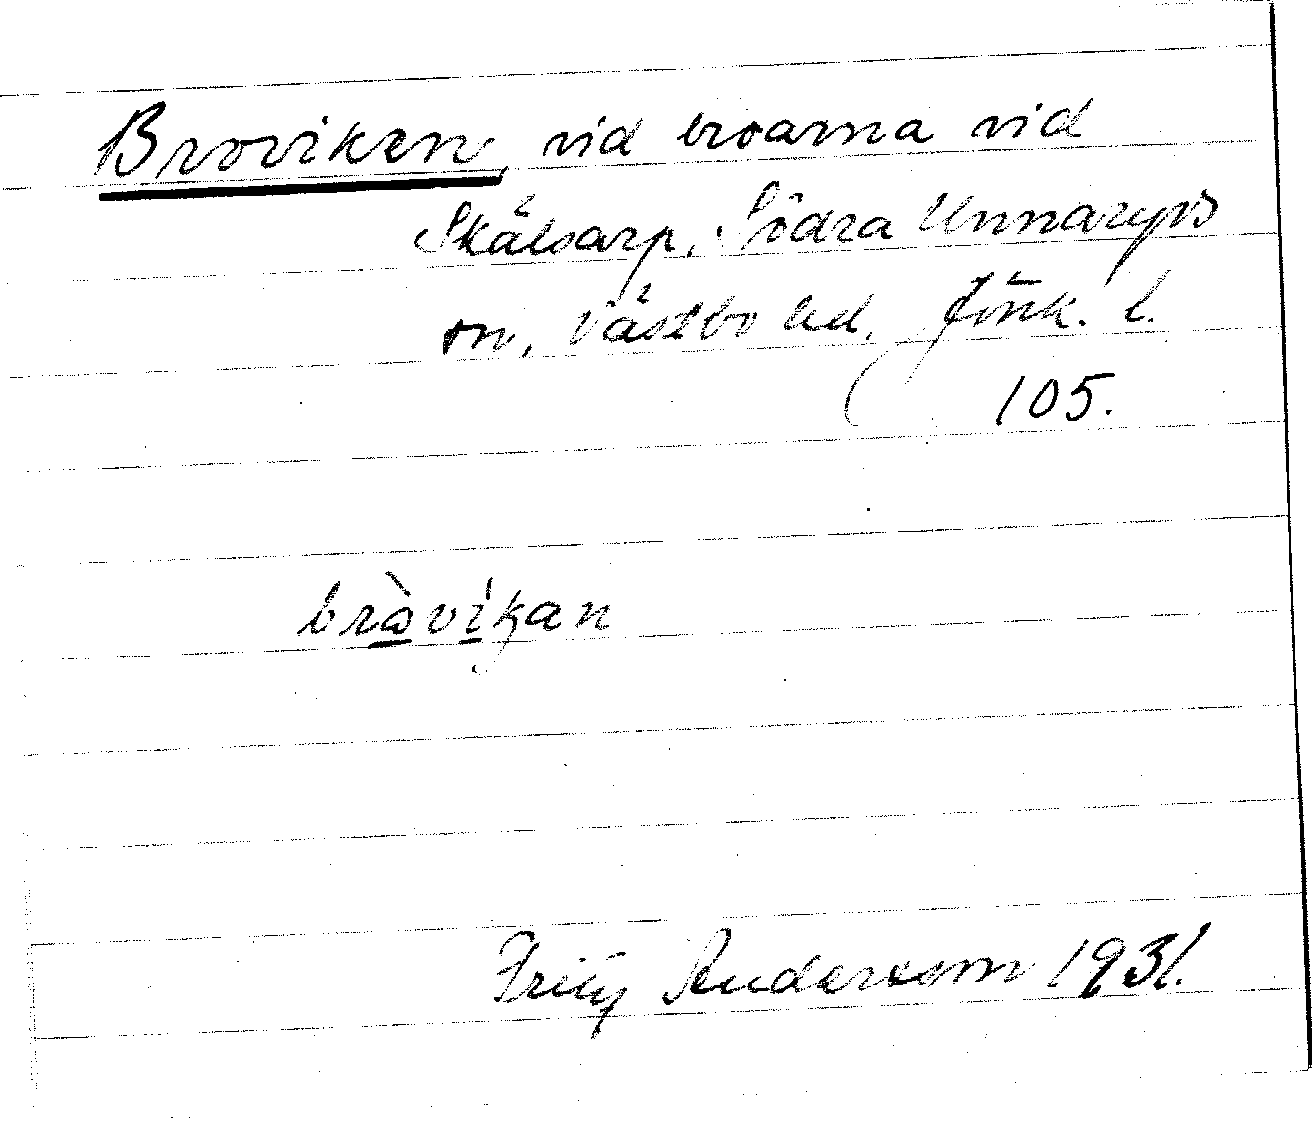 Broviken, vid broarna vid
Skålsarp, Södra Unnaryds
sn, Västbo hd, Jönk. l.
105.
bròvíkan
Fritz Andersson 1931.